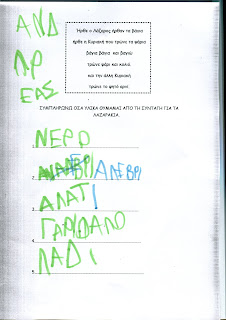 ΑΝΔ
ΡΡ
ΕΑΣ
Ήρθε ο Λάζαρος ήρθαν τα βάια
ήρθε η Κυριακή που τρώνε τα ψάρια
βάγια βάγια και βαγιώ
τρώνε ψάρι και κολιό
και την άλλη Κυριακή
τρώνε το ψητό αρνί
ΣΥΜΠΛΗΡΩΝΩ ΟΣΑ ΥΛΙΚΑ ΘΥΜΑΜΑΙ ΑΠΟ ΤΗ ΣΥΝΤΑΓΗ ΓΙΑ ΤΑ
ΛΑΖΑΡΑΚΙΑ.
1 ΝΕΡΟ
2 ΑΛΕΒΡΙ
3 ΑΛΑΤΙ
4 ΓΑΡΙΔΑΛΟ
5 ΛΑΔΙ